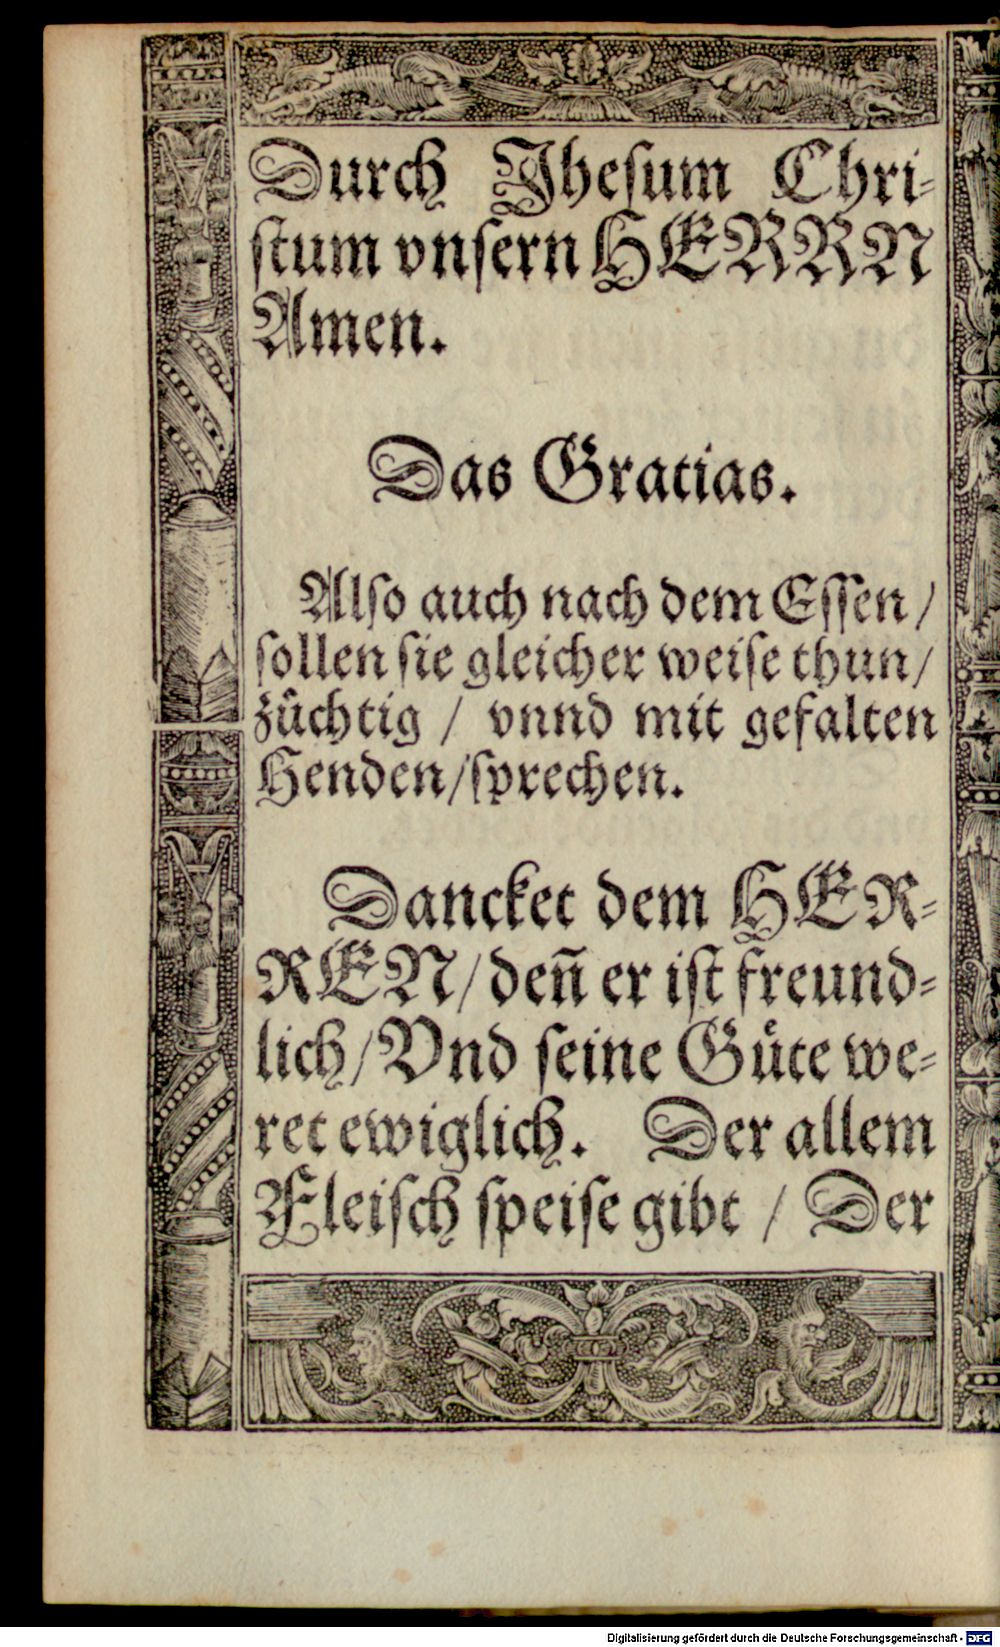 Durch Jheſum Chri⸗
ſtum vnſern HERRN
Amen.
Das Gratias.
Alſo auch nach dem Eſſen /
ſollen ſie gleicher weiſe thun /
zuͤchtig / vnnd mit gefalten
Henden / ſprechen.
Dancket dem HER⸗
REN / deñ er iſt freund⸗
lich / Vnd ſeine Guͤte we⸗
ret ewiglich. Der allem
Fleiſch ſpeiſe gibt / Der
Digitalisierung gefördert durch die Deutsche Forschungsgemeinschaft - DFG